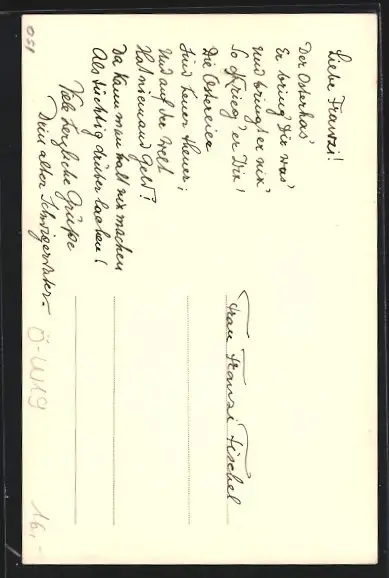 Liebe Franzi!
Der Osterhas'
Er bring' Dir was'
Und bringt er nix'
So krieg' er Dix!
Die Ostereier
Sind teuer heuer;
Und auf der Welt
Hat niemand Geld!
Da kann man halt nix machen
Als tüchtig drüber lachen!
Viele herzliche Grüße
Dein alter Schwiegervater.
Frau Franzi Fischel
051
Ö-W19
16,-